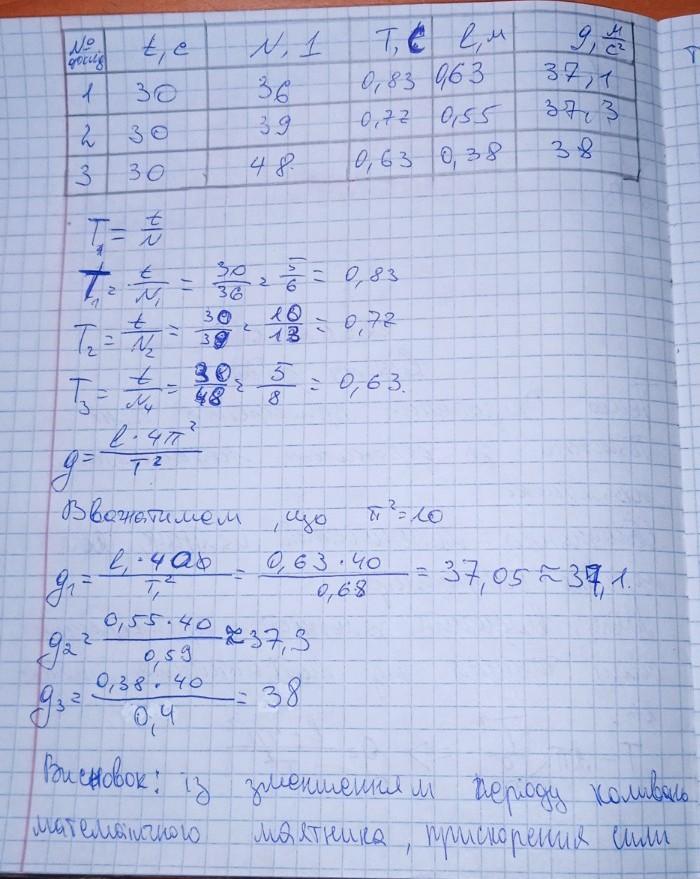 № досл t, c N, 1 T, c l, м g, м/с²
1 30 36 0,83 0,63 37,1
2 30 39 0,77 0,55 37,3
3 30 48. 0,63 0,38 38
T₁ = t/N
T₁ = t/N₁ = 30/36 = 5/6 = 0,83
T₂ = t/N₂ = 30/39 = 10/13 = 0,77
T₃ = t/N₄ = 30/48 = 5/8 = 0,63.
g = l · 4π²/T²
Вважатимем, що π² = 10
g₁ = l₁ · 40/T₁² = 0,63 · 40/0,68 = 37,05 ≈ 37,1.
g₂ = 0,55 · 40/0,59 ≈ 37,3
g₃ = 0,38 · 40/0,4 = 38
Висновок: із зменшенням періоду коливань
математичного маятника, прискорення сили